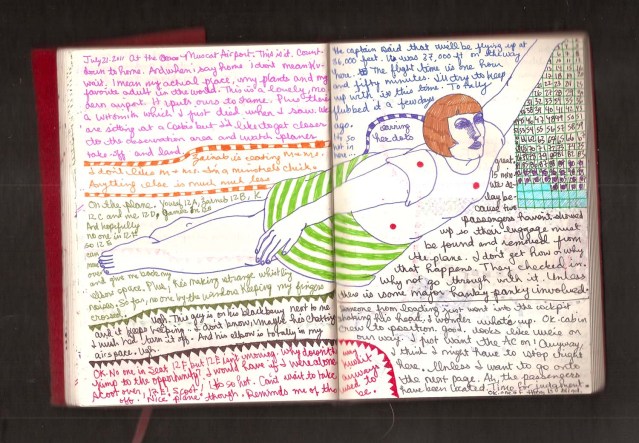 July 21-2011 At the Muscat Airport. This is it. Count-
down to home. And when I say home I don't mean Ku-
wait. I mean my actual place, my plants and my
favorite adult in the world. This is a lovely, mo-
dern airport. It puts ours to shame. Plus there's
a which I just died when I saw. We
are sitting at a Costa but I'd like to get closer
to the observation area and watch planes
take-off and land.
Zainab is eating m+ms.
I don't like m+ms. I'm a munchels chick.
Anything else is much much less
On the plane. Yousef 12A, Zainab 12B, K
12C, and me 12D,
And hopefully
no one in
so 12E
can
move
over
and give me back my
elbow space. Plus, he's making strange whistling
noises. So far, no one by the window. Keeping my fingers
crossed.
Ugh. This guy is on his blackberry next to me
and it keeps beeping. I don't know, maybe his battery
I wish he'd turn it off. And his elbow is totally in my
airspace. Ugh.
OK. No one in seat 12F but 12E isn't moving. Why doesn't he
jump to the opportunity? I would have if I were alone
Scoot over, 12E. Scoot! I'm so hot. Can't wait to take
off. Nice plane though. Reminds me of the
way
Kuwait
Airways
used to
be.
The captain said that we'll be flying up at
36,000 feet. It was 37,000 ft on the way
here. The flight time is one hour
and fifty minutes. I'll try to keep
up with it this time. I totally
flubbed it a few days
ago.
seeing
red dots
I'm so
not in
here
great.
15 more
minutes de-
lay be-
cause two
passengers haven't showed
up so their luggage must
be found and removed from
the plane. I don't get how or why
that happens. They checked in.
Why not go through with it. Unless
there is some major hanky panky involved.
Someone from loading just went into the cockpit
shaking his head, I wonder what's up. Ok - cabin
crew to position good. Looks like we're on
our way. I just want the AC on! Anyway,
I think I might have to stop right
here. Unless I want to go onto
the next page. Ah, the passengers
have been located. Time for judgment.